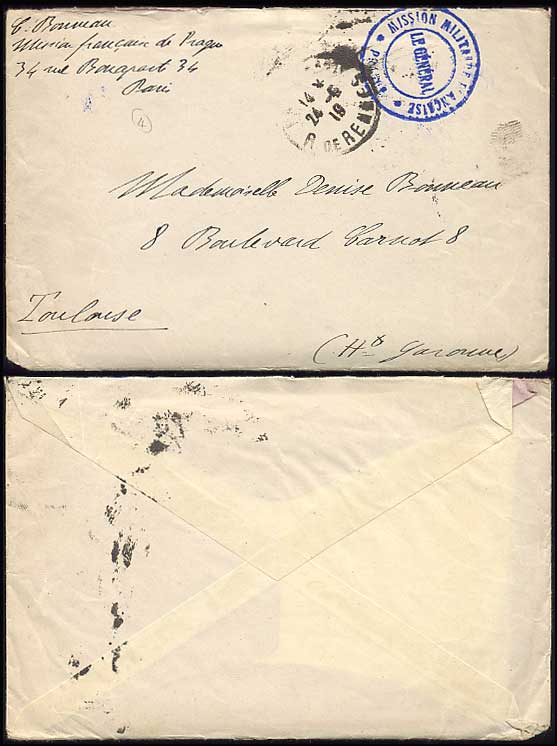 E. Bonneau
Mission française de Prague
34 rue Bonaparte 34
Paris
4
MISSION MILITAIRE FRANÇAISE
LE GÉNÉRAL
14 *
24 - 6
19
R. DE RENNES
Mademoiselle Denise Bonneau
8 Boulevard Carnot 8
Toulouse
(Hte Garonne)